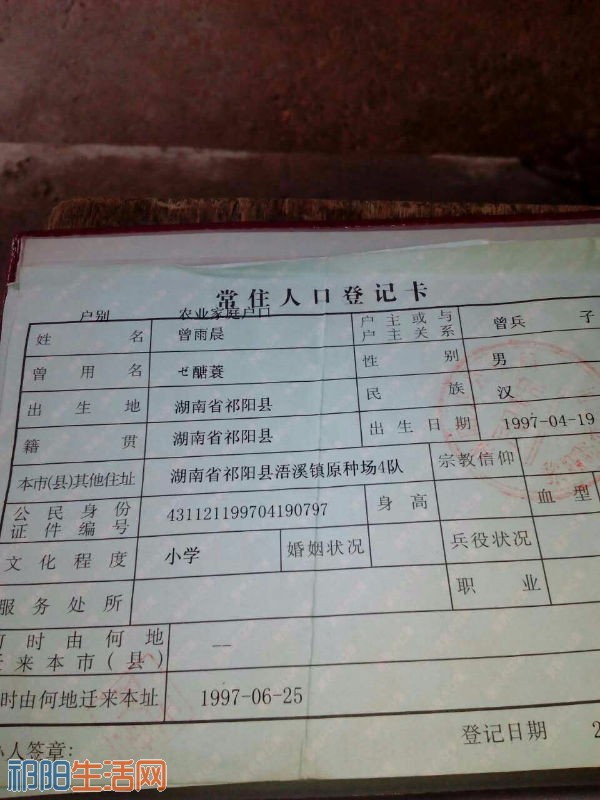 常住人口登记卡
户别 农业家庭户口
姓名 曾雨晨 户主或与户主关系 曾兵 子
曾用名 ゼ醣蓑 性别 男
出生地 湖南省祁阳县 民族 汉
籍贯 湖南省祁阳县 出生日期 1997-04-19
本市(县)其他住址 湖南省祁阳县浯溪镇原种场4队 宗教信仰
公民身份证件编号 431121199704190797 身高 血型
文化程度 小学 婚姻状况 兵役状况
服务处所 职业
时由何地
来本市(县) --
时由何地迁来本址 1997-06-25
人签章: 登记日期 2
祁阳生活网